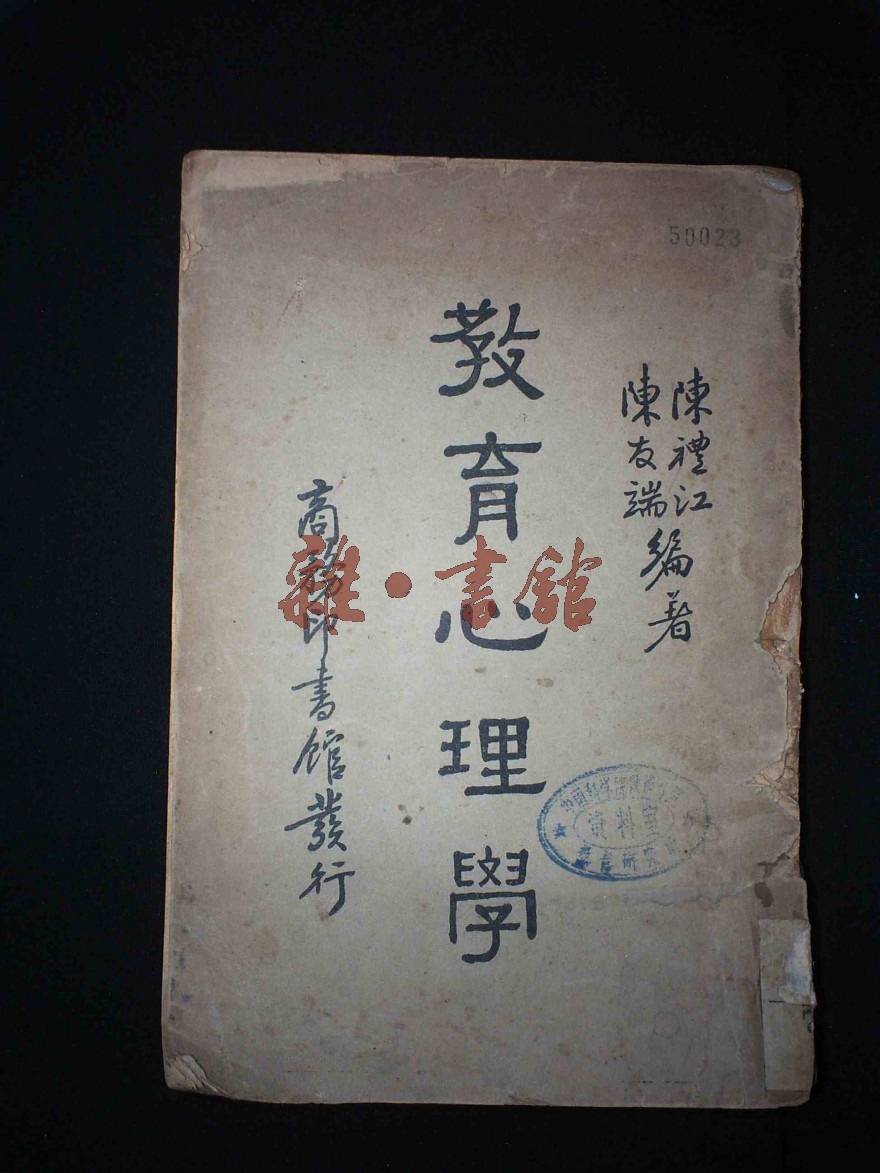 50023
陳禮江
陳友端
編著
教育心理學
商務印書館發行
雜·書館
資料室